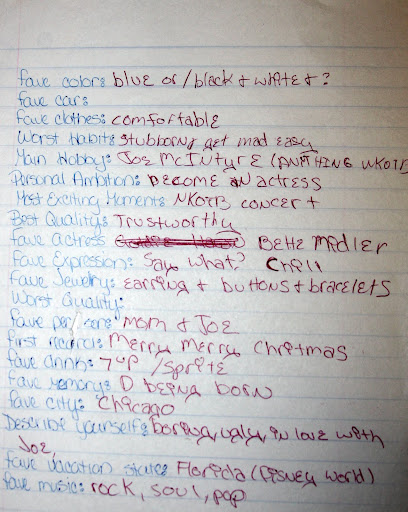 fave color: blue or/black & white & ?
fave car:
fave clothes: comfortable
Worst Habit: stubborn, get mad easy
Main Hobby: Joe McIntyre (ANYTHING NKOTB)
Personal Ambition: become an actress
Most Exciting Moment: NKOTB concert
Best Quality: Trustworthy
Fave actress Bette Midler
Fave Expression: Say what? Chill
Fave Jewelry: earring & buttons & bracelets
Worst Quality:
fave person: mom & Joe
First record: Merry Merry Christmas
fave drink: 7up / Sprite
fave Memory: being born
fave city: Chicago
Describe yourself: boring, ugly, in love with
Joe,
fave vacation state: Florida (Disney World)
fave music: rock, soul, pop